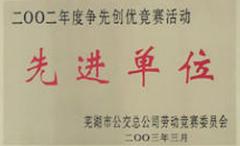 二〇〇二年度争先创优竞赛活动
先进单位
芜湖市公交总公司劳动竞赛委员会
二〇〇三年三月